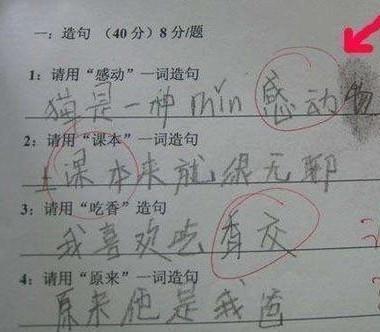 一：造句 （40分）8分/题
1：请用“感动”一词造句
猫是一种min感动物
2：请用“课本”一词造句
上课本来就很无聊
3：请用“吃香”造句
我喜欢吃香交
4：请用“原来”一词造句
原来他是我爸